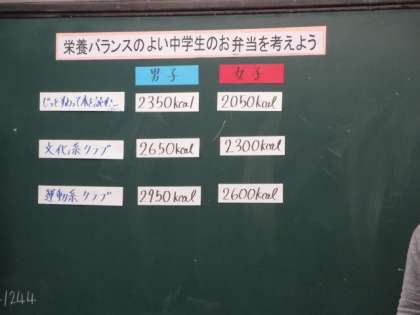 栄養バランスのよい中学生のお弁当を考えよう
男子 女子
じっとすわって本を読むなど 2350kcal 2050kcal
文化系クラブ 2650kcal 2300kcal
運動系クラブ 2950kcal 2600kcal
1244